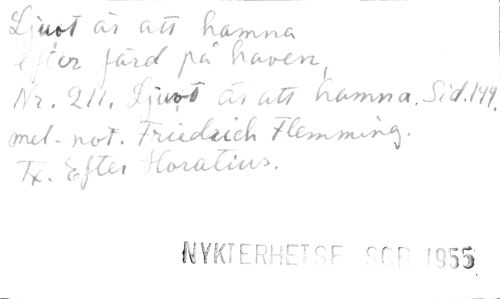 Ljuvt är att hamna
efter färd på haven,
Nr. 211. Ljuvt är att hamna. Sid. 144.
mel-not. Friedrich Flemming.
Tx. Efter Horatius.
NYKTERHETSF SOB 1955